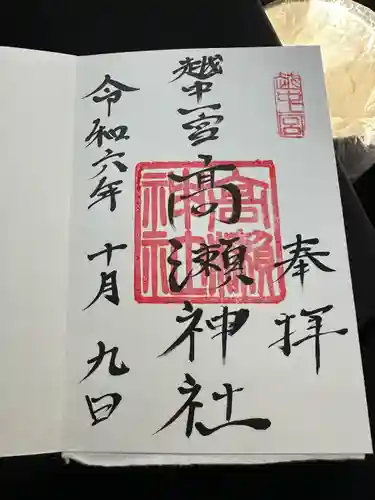 越中一宮
奉拝
越中一宮
高瀬神社
高瀬神社
令和六年十月九日